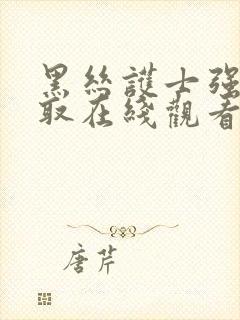 黑絲護士强
取在綫觀看
唐芹